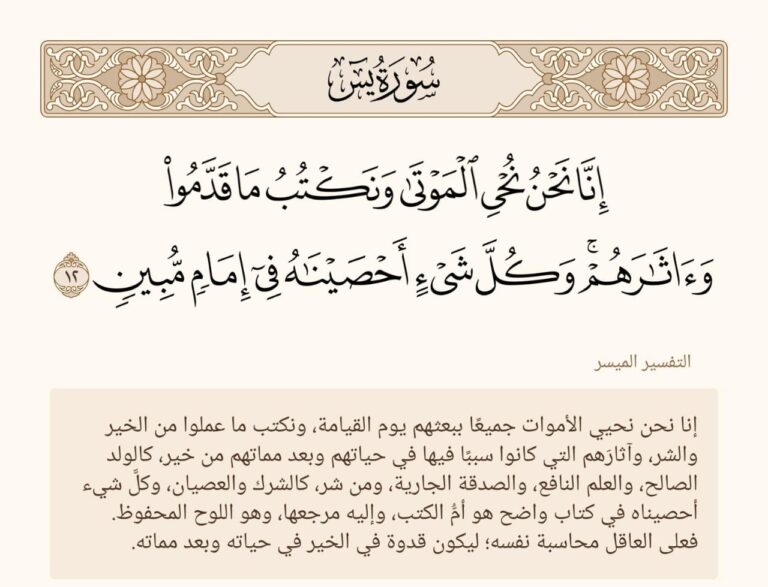 سُورَةُ يسٓ
إِنَّا نَحْنُ نُحْيِ ٱلْمَوْتَىٰ وَنَكْتُبُ مَا قَدَّمُوا۟
وَءَاثَٰرَهُمْ ۚ وَكُلَّ شَىْءٍ أَحْصَيْنَٰهُ فِىٓ إِمَامٍ مُّبِينٍ ١٢
التفسير الميسر
إنا نحن نحيي الأموات جميعًا ببعثهم يوم القيامة، ونكتب ما عملوا من الخير
والشر، وآثارَهم التي كانوا سببًا فيها في حياتهم وبعد مماتهم من خير، كالولد
الصالح، والعلم النافع، والصدقة الجارية، ومن شر، كالشرك والعصيان، وكلَّ شيء
أحصيناه في كتاب واضح هو أمُّ الكتب، وإليه مرجعها، وهو اللوح المحفوظ.
فعلى العاقل محاسبة نفسه؛ ليكون قدوة في الخير في حياته وبعد مماته.